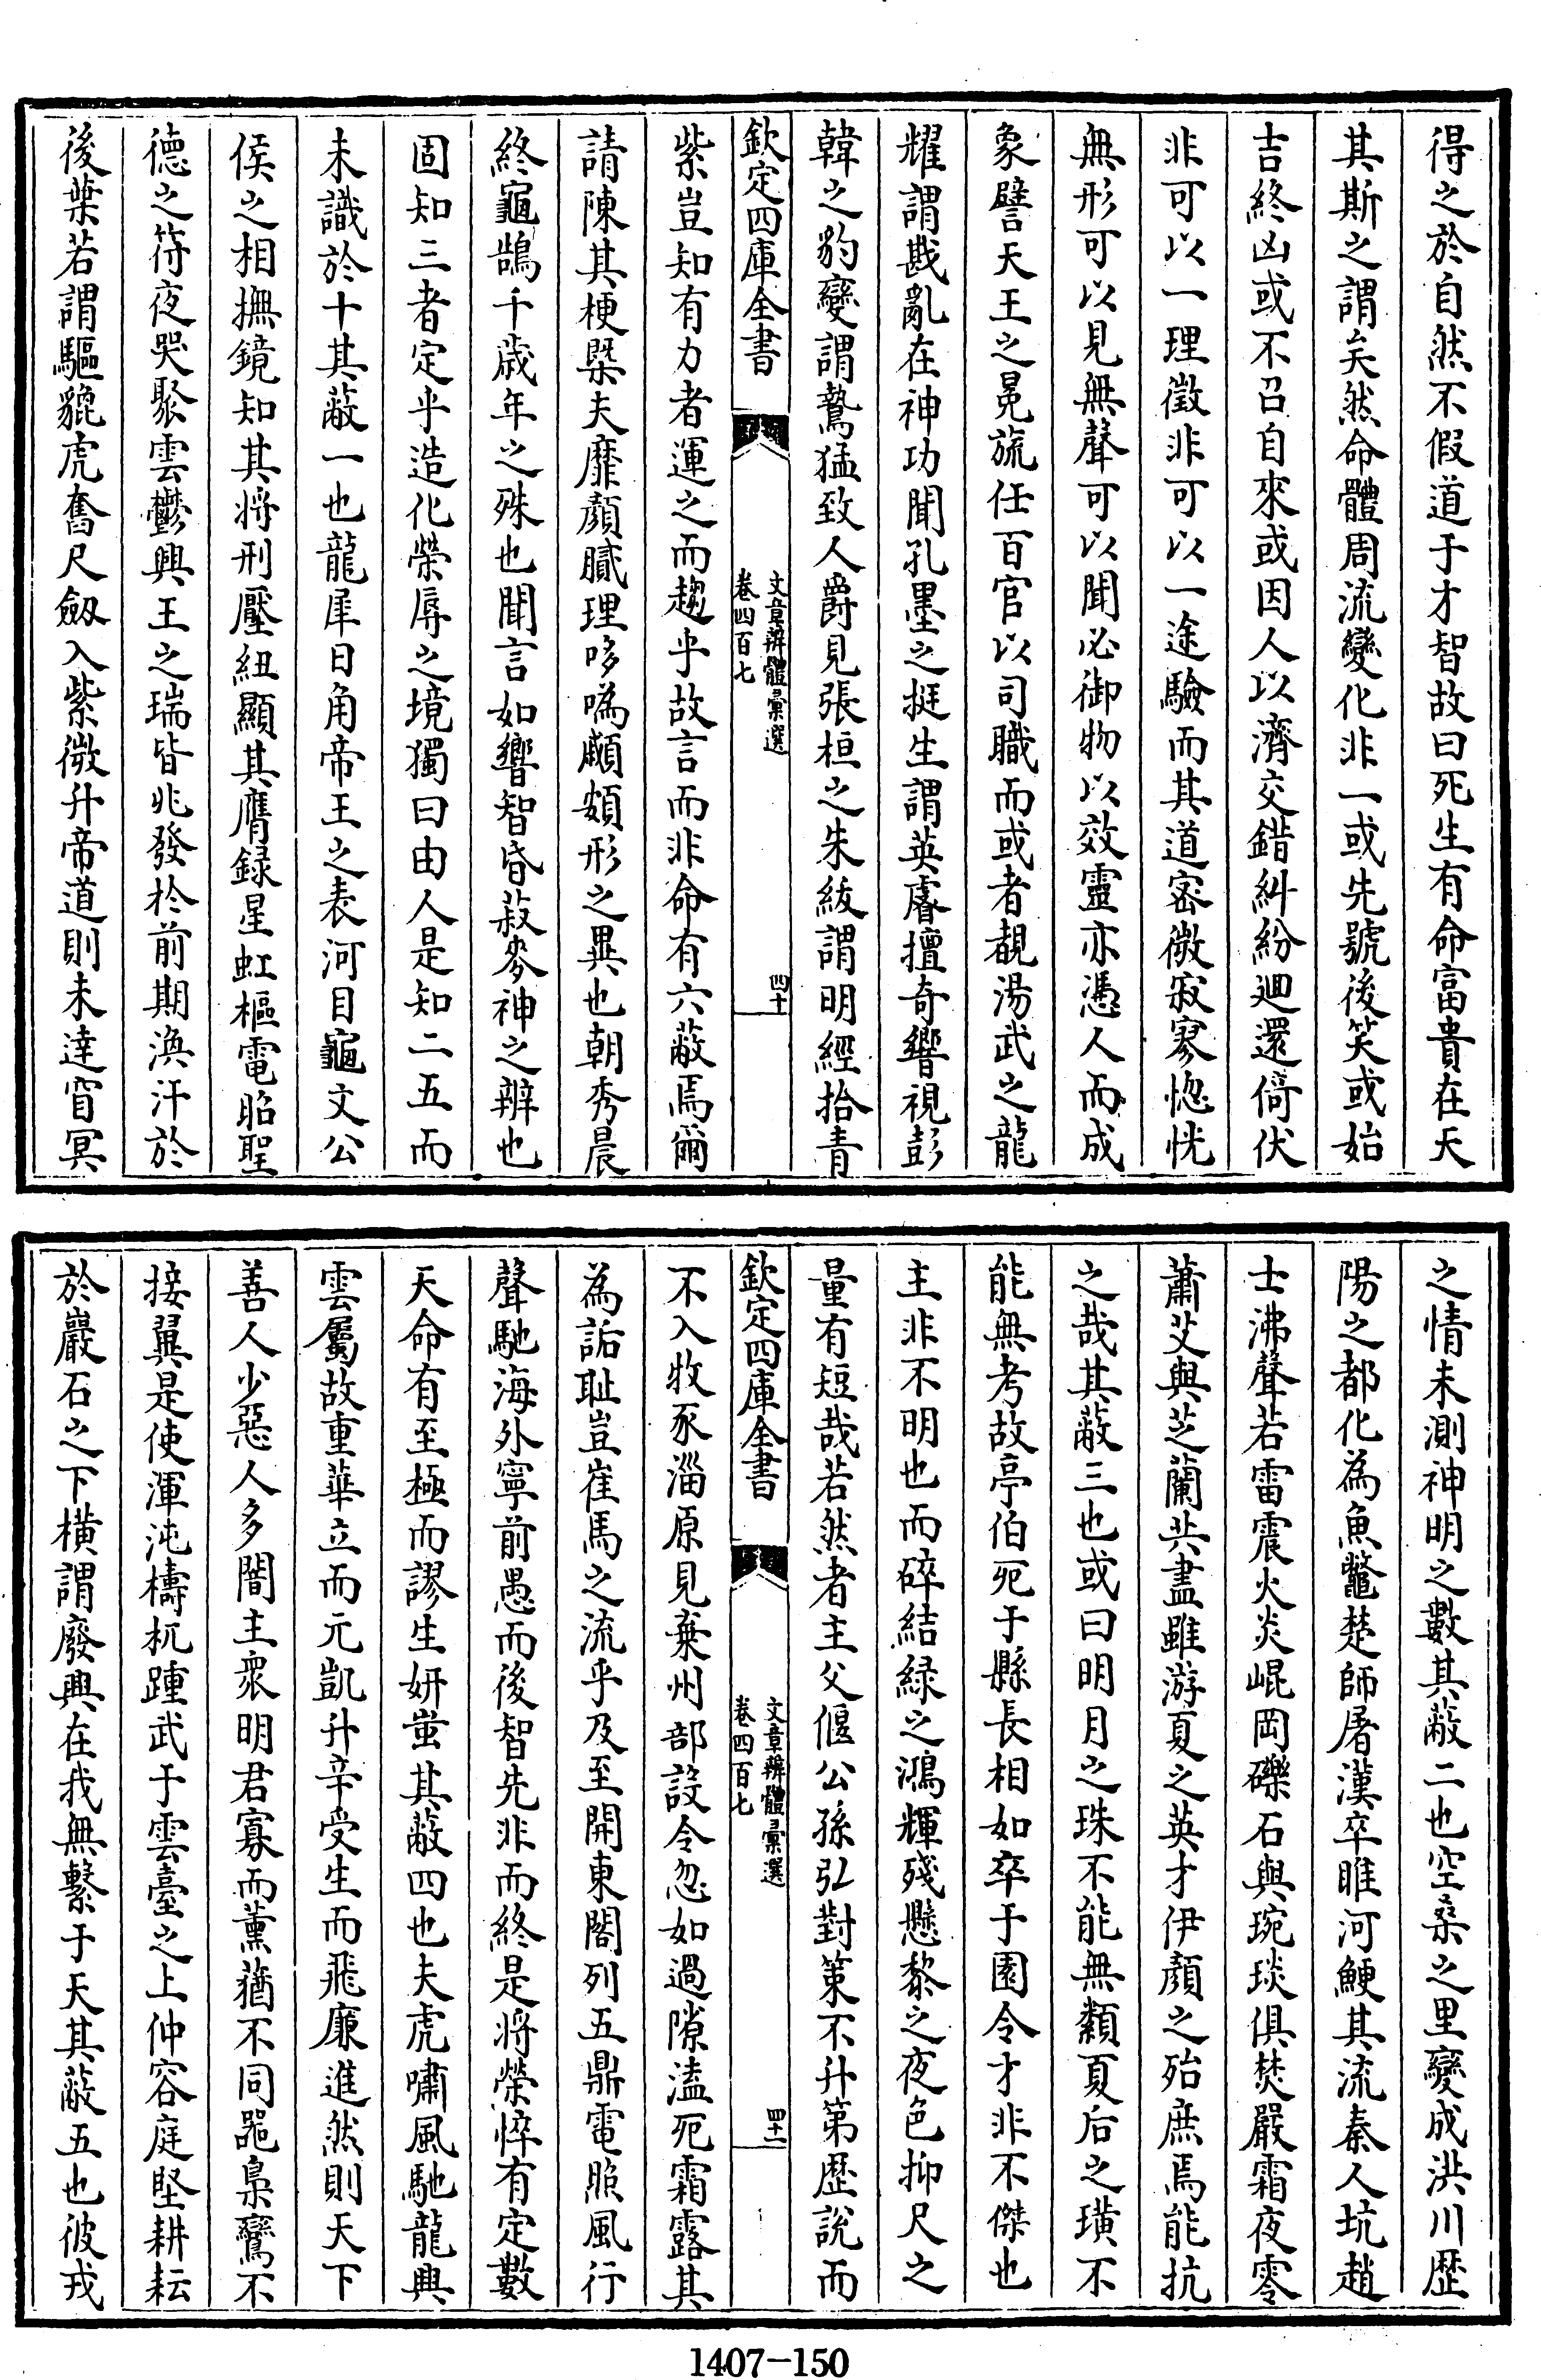 得之於自然不假道于才智故曰死生有命富貴在天
其斯之謂矣然命體周流變化非一或先號後笑或始
吉終凶或不召自來或因人以濟交錯糾紛迴還倚伏
非可以一理徵非可以一途驗而其道密微寂寥惚恍
無形可以見無聲可以聞必御物以效靈亦憑人而成
象譬天王之冕旒任百官以司職而或者覩湯武之龍
耀謂戡亂在神功聞孔墨之挺生謂英睿擅奇響視彭
韓之豹變謂鷙猛致人爵見張桓之朱紱謂明經拾青
欽定四庫全書
文章辨體彙選
卷四百七
四十
紫豈知有力者運之而趨乎故言而非命有六蔽焉爾
請陳其梗槩夫靡顏膩理哆喎顣頞形之異也朝秀晨
終龜鵠千歲年之殊也聞言如響智昏菽麥神之辨也
固知三者定乎造化榮辱之境獨曰由人是知二五而
未識於十其蔽一也龍犀日角帝王之表河目龜文公
侯之相撫鏡知其將刑壓紐顯其膺録星虹樞電昭聖
德之符夜哭聚雲鬱興王之瑞皆兆發於前期渙汗於
後葉若謂驅貔虎奮尺劔入紫微升帝道則未逹窅冥
之情未測神明之數其蔽二也空桑之里變成洪川歷
陽之都化為魚鼈楚師屠漢卒睢河鯁其流秦人坑趙
士沸聲若雷震火炎崐岡礫石與琬琰俱焚嚴霜夜零
蕭艾與芝蘭共盡雖游夏之英才伊顏之殆庶焉能抗
之哉其蔽三也或曰明月之珠不能無纇夏后之璜不
能無考故亭伯死于縣長相如卒于園令才非不傑也
主非不明也而碎結緑之鴻輝殘懸黎之夜色抑尺之
量有短哉若然者主父偃公孫弘對策不升第歷說而
欽定四庫全書
文章辨體彙選
卷四百七
四十一
不入牧豕淄原見棄州部設令忽如過隙溘死霜露其
為詬耻豈崔馬之流乎及至開東閤列五鼎電照風行
聲馳海外寧前愚而後智先非而終是將榮悴有定數
天命有至極而謬生妍蚩其蔽四也夫虎嘯風馳龍興
雲屬故重華立而元凱升辛受生而飛廉進然則天下
善人少惡人多闇主衆明君寡而薰蕕不同器梟鸞不
接翼是使渾沌檮杌踵武于雲臺之上仲容庭堅耕耘
於巖石之下横謂廢興在我無繫于天其蔽五也彼戎
1407-150